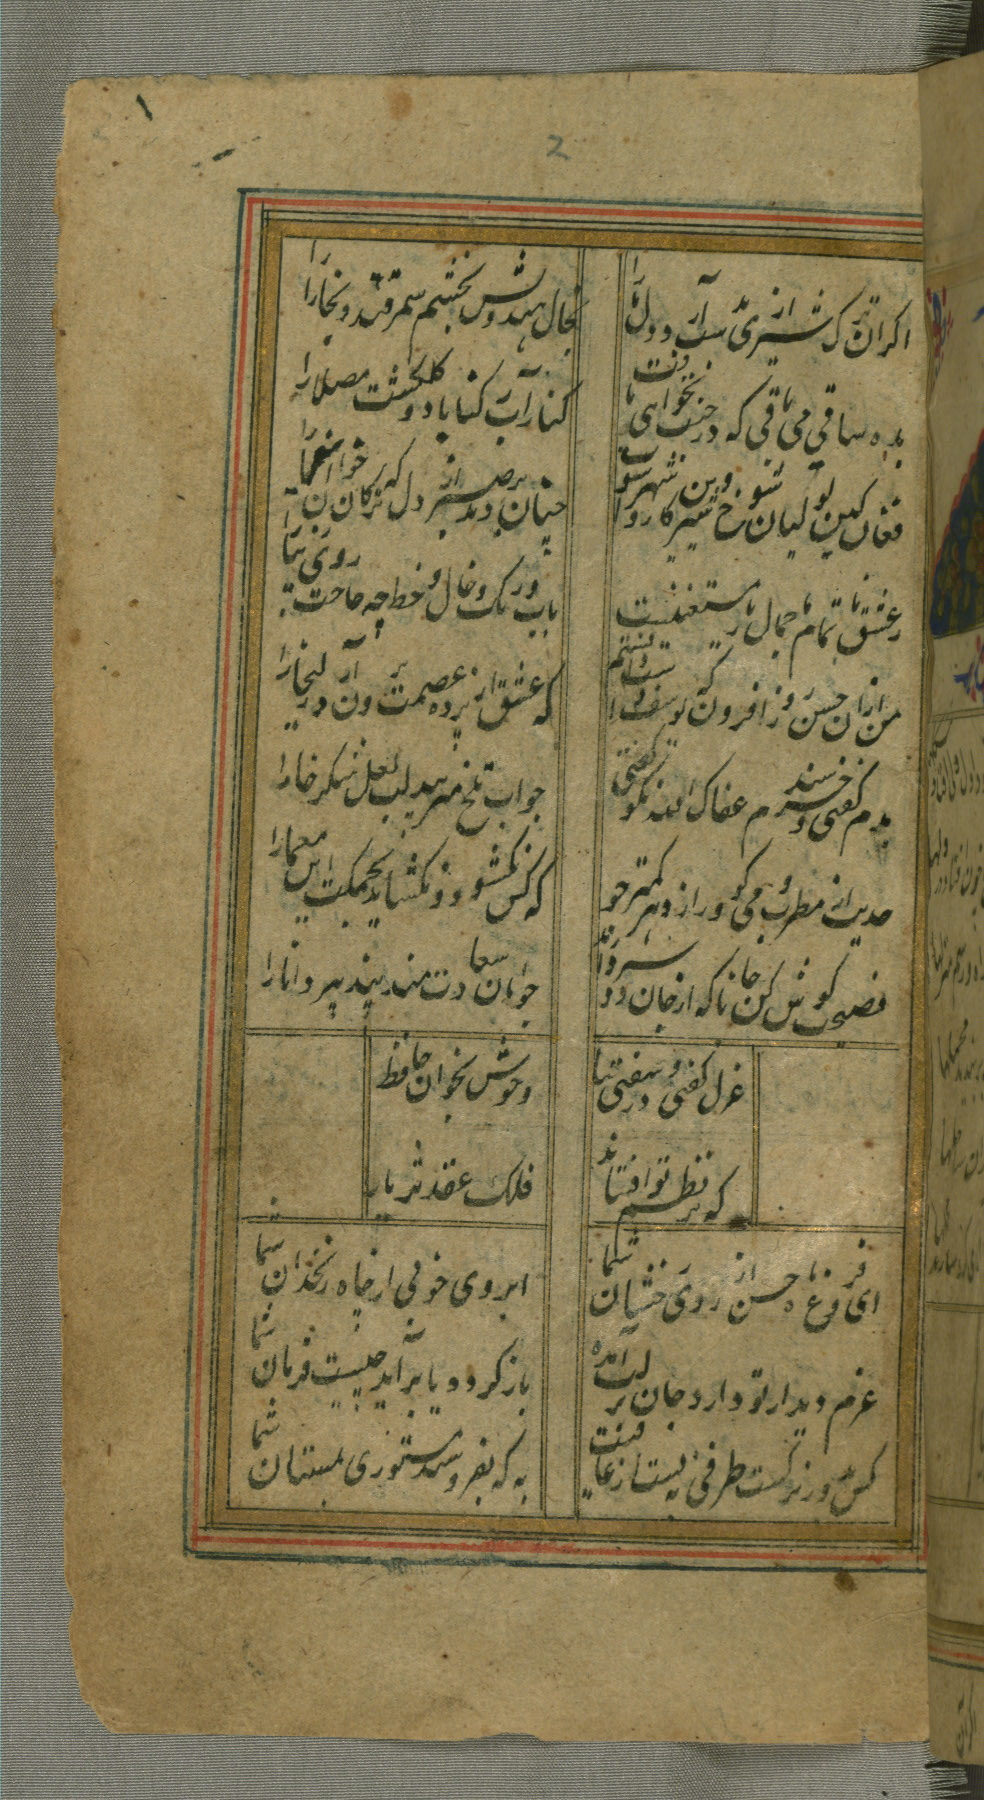 ۱
2
اکر آن ترک شیرازی بدست آرد دل ما را
بخال هندوش بخشم سمرقند و بخارا را
بده ساقی می باقی که در جنت نخواهی یافت
کنار آب رکناباد و کلکشت مصلا را
فغان کین لولیان شوخ شیرین کار شهرآشوب
چنان بردند صبر از دل که ترکان خوان یغما را
ز عشق ناتمام ما جمال یار مستغنیست
بآب و رنک و خال و خط چه حاجت روی زیبا را
من از آن حسن روزافزون که یوسف داشت دانستم
که عشق از پرده عصمت برون آرد زلیخا را
بدم کفتی و خرسندم عفاک الله نکو کفتی
جواب تلخ میزیبد لب لعل شکرخا را
حدیث از مطرب و می کو و راز دهر کمتر جو
که کس نکشود و نکشاید بحکمت این معما را
نصیحت کوش کن جانا که از جان دوستر دارند
جوانان سعادتمند پند پیر دانا را
غزل کفتی و در سفتی بیا
و خوش بخوان حافظ
که بر نظم تو افشاند
فلک عقد ثریا
ای فروغ ماه حسن از روی رخشان شما
ابروی خوبی از چاه زنخدان شما
عزم دیدار تو دارد جان بر لب آمده
باز کردد یا برآید چیست فرمان شما
کس بدور نرکست طرفی نبست از عافیت
به که نفروشند مستوری بمستان شما